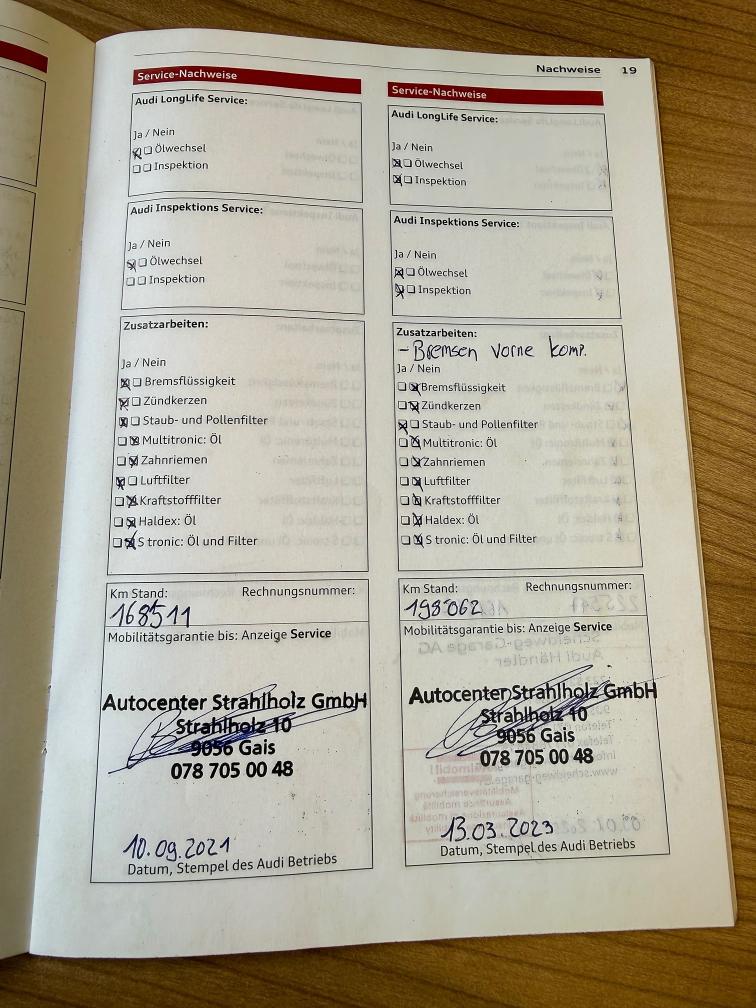 Nachweise 19
Service-Nachweise
Audi LongLife Service:
Ja / Nein
Ölwechsel
Inspektion
Audi Inspektions Service:
Ja / Nein
Ölwechsel
Inspektion
Zusatzarbeiten:
Ja / Nein
Bremsflüssigkeit
Zündkerzen
Staub- und Pollenfilter
Multitronic: Öl
Zahnriemen
Luftfilter
Kraftstofffilter
Haldex: Öl
S tronic: Öl und Filter
Km Stand: Rechnungsnummer:
168511
Mobilitätsgarantie bis: Anzeige Service
Autocenter Strahlholz GmbH
Strahlholz 10
9056 Gais
078 705 00 48
10.09.2021
Datum, Stempel des Audi Betriebs
Service-Nachweise
Audi LongLife Service:
Ja / Nein
Ölwechsel
Inspektion
Audi Inspektions Service:
Ja / Nein
Ölwechsel
Inspektion
Zusatzarbeiten:
- Bremsen vorne komp.
Ja / Nein
Bremsflüssigkeit
Zündkerzen
Staub- und Pollenfilter
Multitronic: Öl
Zahnriemen
Luftfilter
Kraftstofffilter
Haldex: Öl
S tronic: Öl und Filter
Km Stand: Rechnungsnummer:
198062
Mobilitätsgarantie bis: Anzeige Service
Autocenter Strahlholz GmbH
Strahlholz 10
9056 Gais
078 705 00 48
13.03.2023
Datum, Stempel des Audi Betriebs